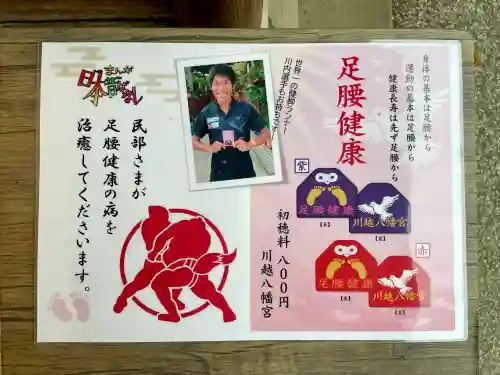 まんが
日本昔ばなし
民部さまが
足腰健康の病を
治癒してくださいます。
世界一の健脚ランナー
川内選手もお持ちです!
足腰健康
身体の基本は足腰から
運動の基本は足腰から
健康長寿は先ず足腰から
紫
足腰健康
川越八幡宮
赤
足腰健康
川越八幡宮
初穂料 八〇〇円
川越八幡宮